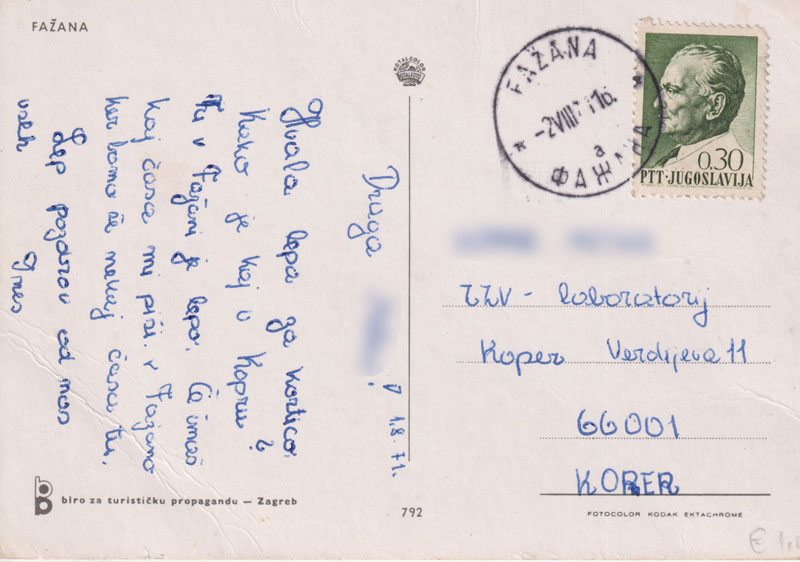 FAŽANA
ROTALCOLOR
Draga
1.8.71.
Hvala lepa za kartico.
Kako je kaj v Kopru?
Tu v Fažani je lepo. Če imaš
kaj časa mi piši v Fažano
ker bomo še nekaj časa tu.
Lep pozdrav od nas
vseh Ines
biro za turističku propagandu — Zagreb
792
FAŽANA
-2VIII 71 16
a
ФАЖАНА
0.30
PTT·JUGOSLAVIJA
ZZV - laboratorij
Koper Verdijeva 11
66001
KOPER
FOTOCOLOR KODAK EKTACHROME